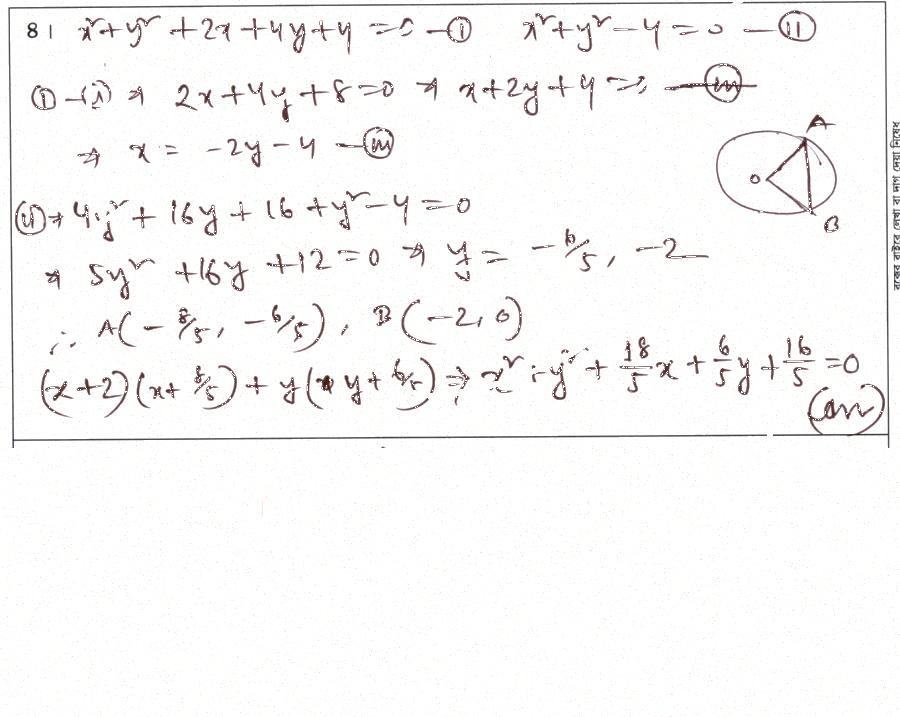 81 x² + y² + 2x + 4y + 4 = 0 —(i) x² + y² - 4 = 0 —(ii)
(i) - (ii) ⇒ 2x + 4y + 8 = 0 ⇒ x + 2y + 4 = 0 —(iii)
⇒ x = -2y - 4 —(iii)
A
O
B
(ii) ⇒ 4y² + 16y + 16 + y² - 4 = 0
⇒ 5y² + 16y + 12 = 0 ⇒ y = -6/5, -2
∴ A(-8/5, -6/5), B(-2, 0)
(x+2)(x+8/5) + y(y+6/5) ⇒ x² + y² + 18/5 x + 6/5 y + 16/5 = 0
(Ans)